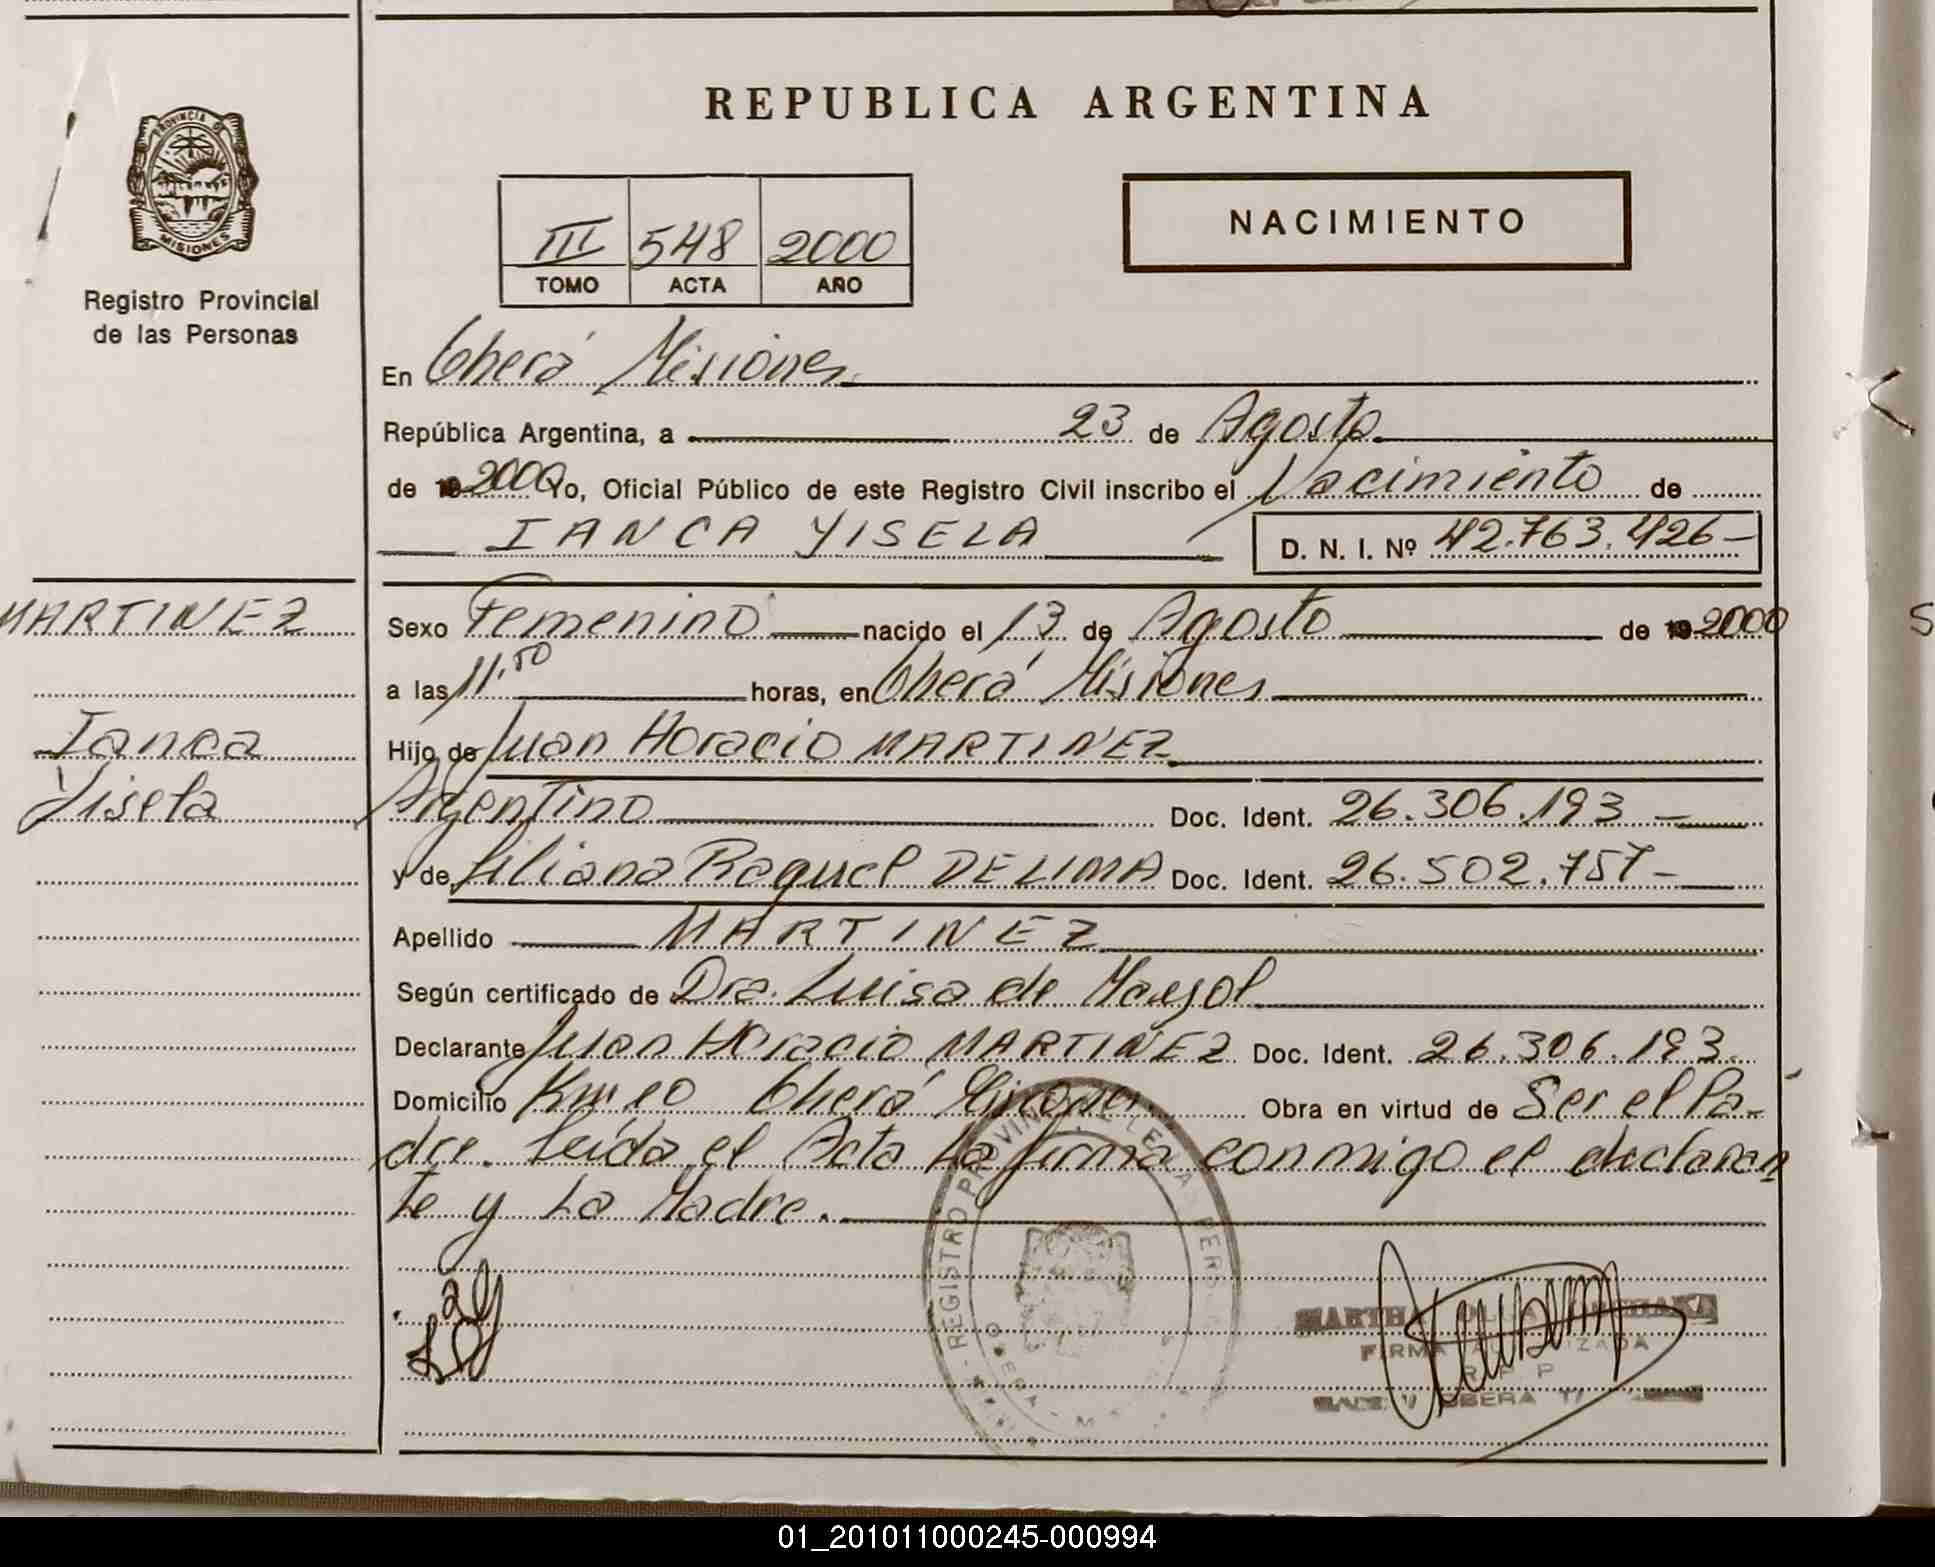 PROVINCIA DE
MISIONES
Registro Provincial
de las Personas
MARTINEZ
Ianca
Yisela
REPUBLICA ARGENTINA
III 548 2000
TOMO ACTA AÑO
NACIMIENTO
En Oberá Misiones
República Argentina, a 23 de Agosto
de 19 2000 Yo, Oficial Público de este Registro Civil inscribo el Nacimiento de
IANCA YISELA D. N. I. Nº 42.763.426-
Sexo Femenino nacido el 13 de Agosto de 19 2000
a las 11.50 horas, en Oberá Misiones
Hijo de Juan Horacio MARTINEZ
Argentino Doc. Ident. 26.306.193-
y de Liliana Raquel DE LIMA Doc. Ident. 26.502.757-
Apellido MARTINEZ
Según certificado de Dra. Luisa de
Declarante Juan Horacio MARTINEZ Doc. Ident. 26.306.193.
Domicilio Km 10 Oberá Misiones. Obra en virtud de Ser el Pa-
dre. Leída el Acta La firma conmigo el declaran
te y La Madre.
REGISTRO PROVINCIAL DE LAS PERSONAS
MARTHA OLGA
FIRMA AUTORIZADA
R. P. P
OBERA
01_201011000245-000994